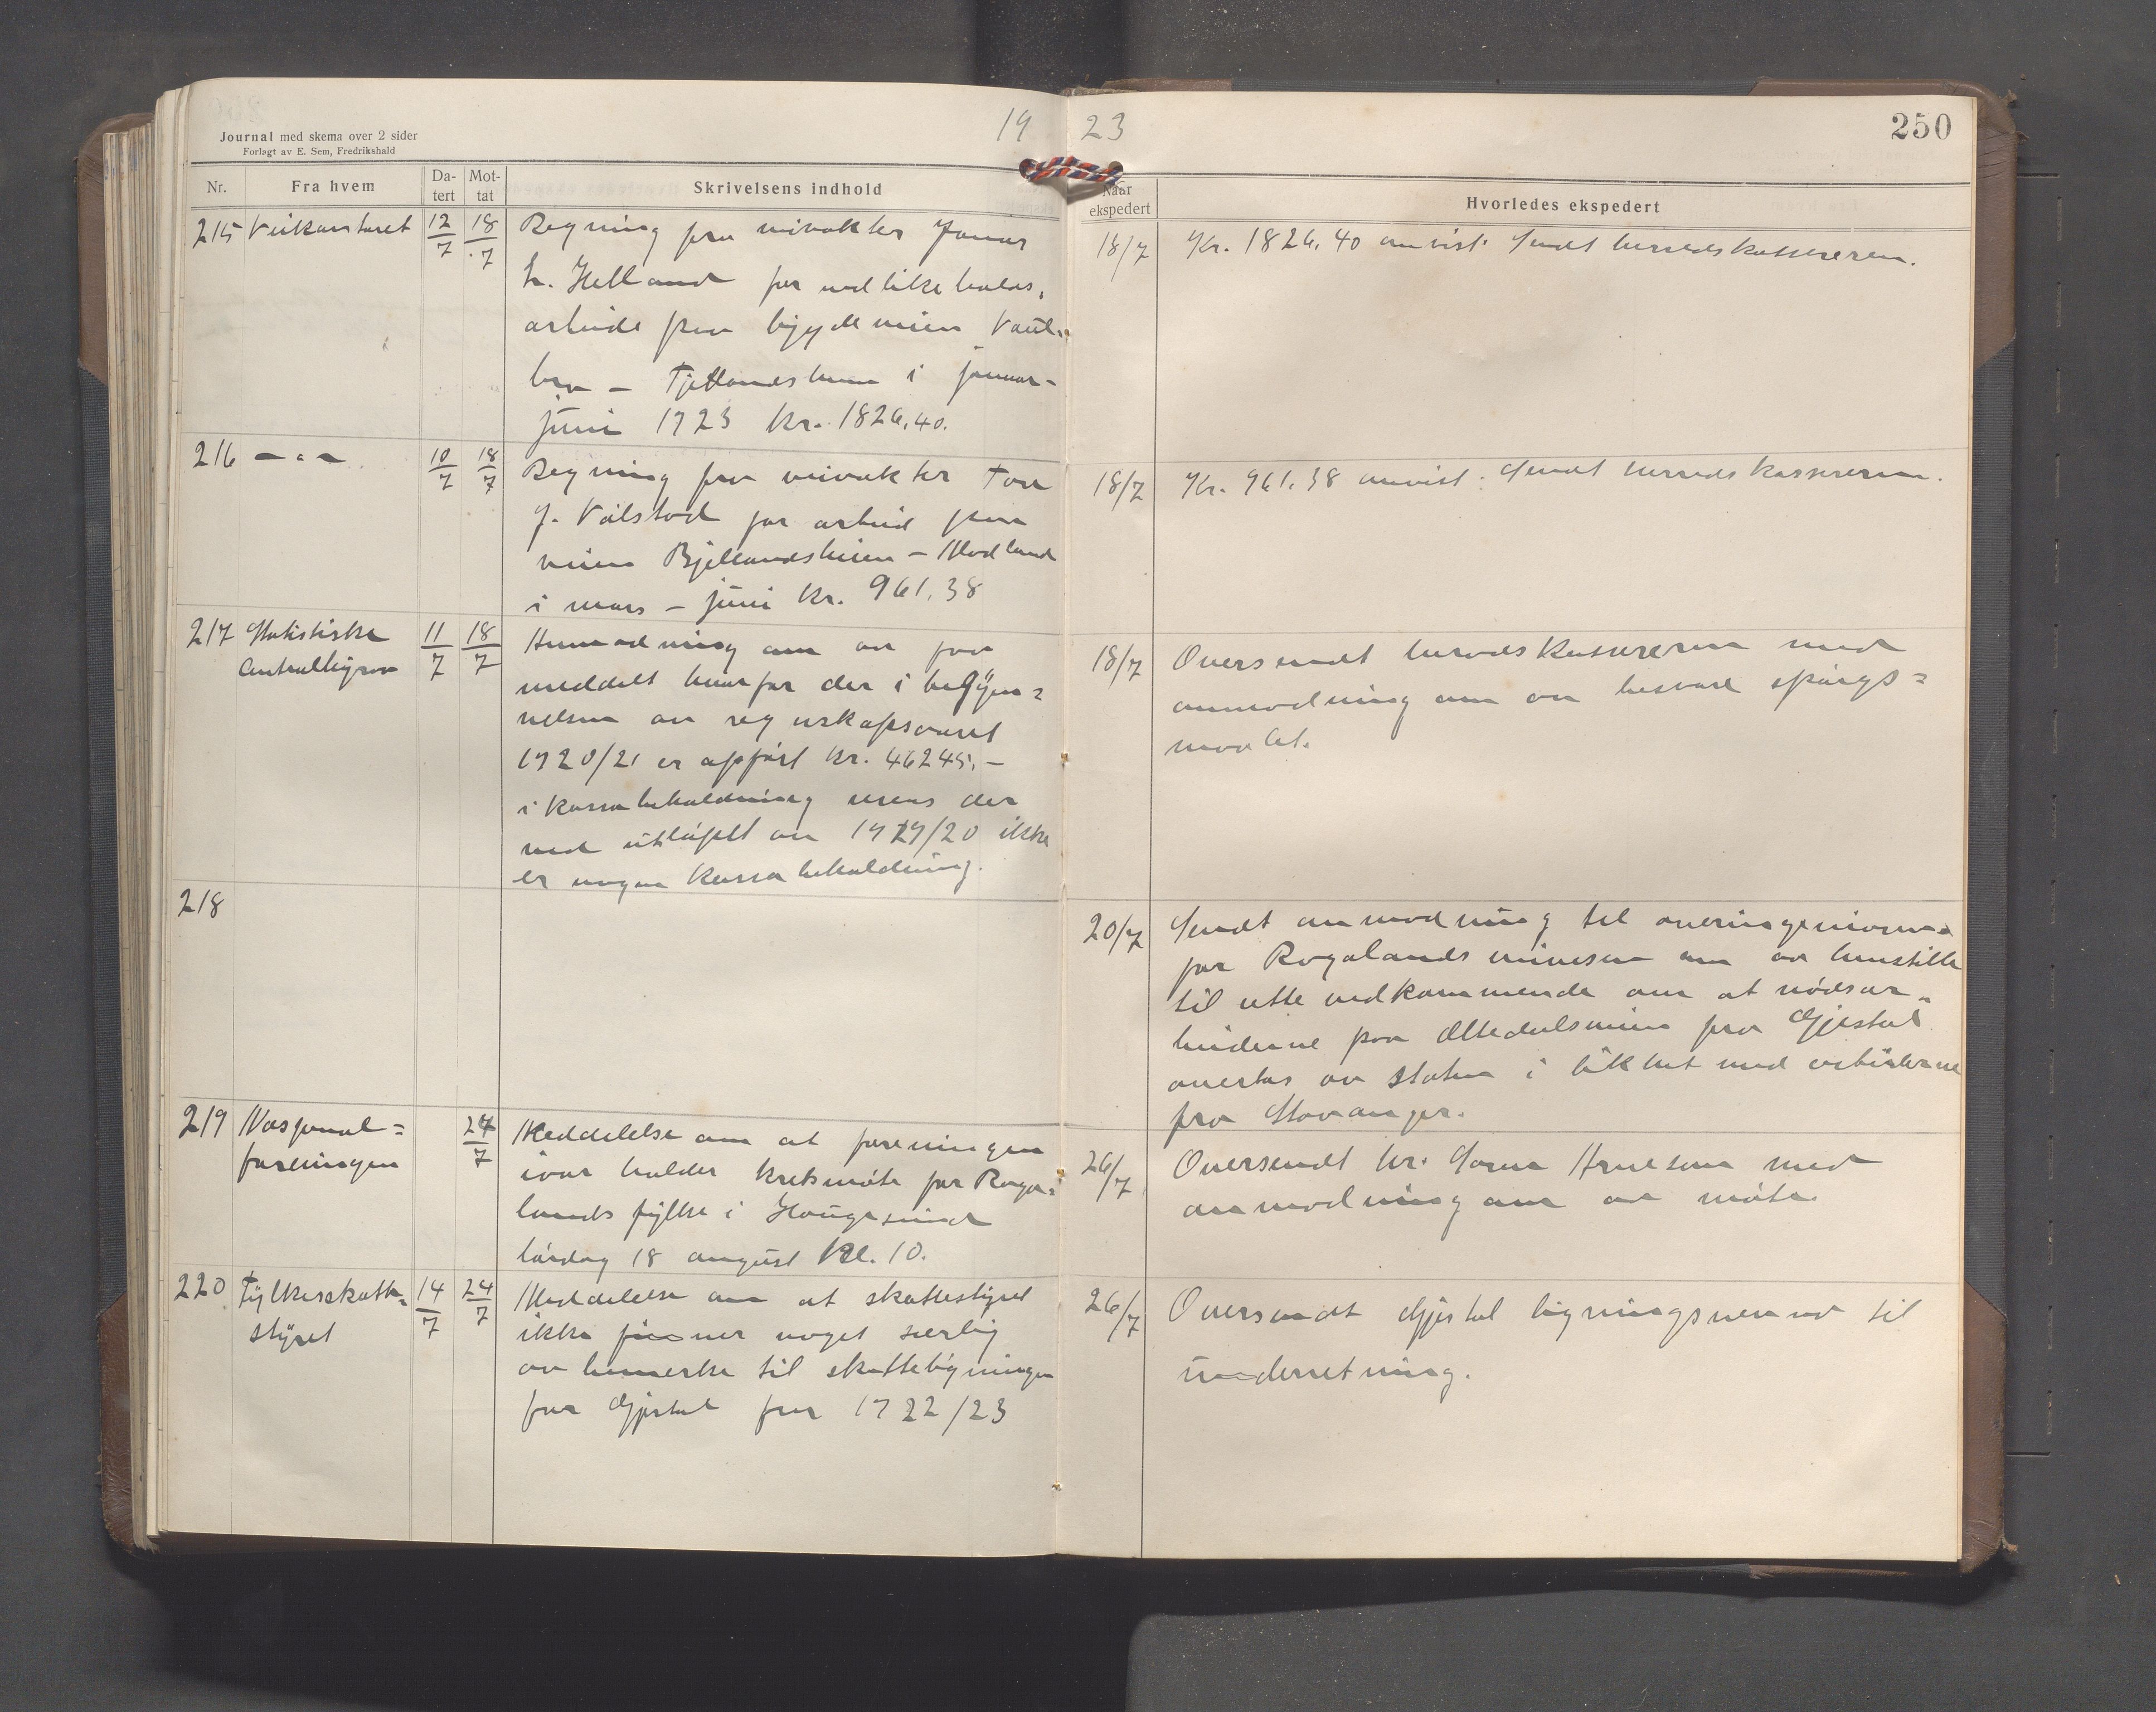 Journal med skema over 2 sider
Forlagt av E. Sem, Fredrikshald
19 23
250
Nr.
Fra hvem
Da-
tert
Mot-
tat
Skrivelsens indhold
215 Veikontoret 12/7 18/7 Regning fra veivokter Jonas
L. Helland for vedlikeholds-
arbeide paa bygdeveien
bro - i januar-
juni 1923 kr. 1826,40.
216 - " - 10/7 18/7 Regning fra veivokter Tore
J. Vålstod for arbeid paa
veien - Modland
i mars - juni kr. 961,38
217 Statistiske 11/7 18/7 Anmodning om aa faa
Centralbyraa
meddelt hvorfor der i begyn=
nelsen av regnskapsaaret
1920/21 er opført kr. 46245,-
i kassabeholdning mens der
ved utløpet av 1919/20 ikke
er nogen kassabeholdning.
218
219 Nasjonal= 24/7 Meddelelse om at foreningen
foreningen
iaar holder kretsmøte for Roga=
lands fylke i Haugesund
lørdag 18 august kl. 10.
220 Fylkesskatte= 14/7 24/7 Meddelelse om at skattestyret
styret
ikke finner noget særlig
aa bemerke til skatteligningen
for Gjestal for 1922/23
Naar
ekspedert
Hvorledes ekspedert
18/7 Kr. 1826,40 anvist. Sendt herredskassereren.
18/7 Kr. 961,38 anvist. Sendt herredskassereren.
18/7 Oversendt herredskassereren med
anmodning om aa besvare spørgs=
maalet.
20/7 Sendt anmodning til overingeniøren
for Rogalands veivesen om aa henstille
til rette vedkommende om at nødsar-
beiderne paa Ælledalsveien fra Gjestal
overtas av staten i likhet med arbeiderne
fra Stavanger.
26/7 Oversendt hr. Arnesen med
anmodning om aa møte.
26/7 Oversendt Gjestal ligningsnevnd til
underretning.